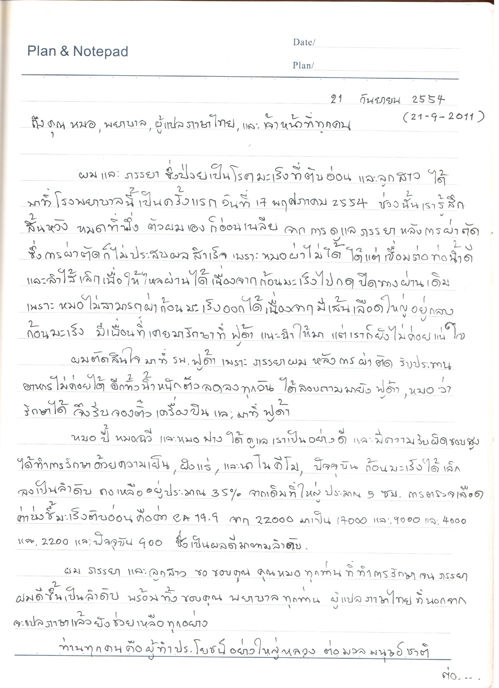 Plan & Notepad
Date/
Plan/
21 กันยายน 2554
(21-9-2011)
ถึง คุณ หมอ, พยาบาล, ผู้แปลภาษาไทย, และ เจ้าหน้าที่ทุกคน
ผม และ ภรรยา ซึ่งป่วยเป็นโรคมะเร็งที่ตับอ่อน และลูกสาว ได้
มาที่ โรงพยาบาลนี้เป็นครั้งแรก วันที่ 17 พฤษภาคม 2554 ช่วงนั้นเรารู้สึก
สิ้นหวัง หมดที่พึ่ง ตัวผมเองก็อ่อนเพลีย จาก การดูแล ภรรยา หลังการผ่าตัด
ซึ่งการผ่าตัดก็ไม่ประสบผลสำเร็จ เพราะ หมอผ่าไม่ได้ ได้แต่ เชื่อมต่อท่อน้ำดี
และลำไส้เล็กเพื่อให้ไหลผ่านได้ เนื่องจากก้อนมะเร็งไปกดปิดทางผ่านเดิม
เพราะ หมอไม่สามารถผ่าก้อนมะเร็งออกได้ เนื่องจาก มีเส้นเลือดใหญ่ อยู่กลาง
ก้อนมะเร็ง มีเพื่อนที่เคยมารักษาที่ ฟูด้า แนะนำให้มา แต่เราก็ยังไม่ค่อยแน่ใจ
ผมตัดสินใจ มาที่ รพ. ฟูด้า เพราะ ภรรยาผม หลังการผ่าตัด รับประทาน
อาหารไม่ค่อยได้ อีกทั้งน้ำหนักตัวลดลงทุกวัน ได้สอบถามมายัง ฟูด้า, หมอว่า
รักษาได้ จึงรีบจองตั๋วเครื่องบิน และ มาที่ ฟูด้า
หมอ ปี้ หมอฉวี และหมอฟาง ได้ดูแลเราเป็นอย่างดี และมีความรับผิดชอบสูง
ได้ทำการรักษาด้วยความเย็น, ฝังแร่, และนาโนคีโม, ปัจจุบัน ก้อนมะเร็งได้เล็ก
ลงเป็นลำดับ คงเหลืออยู่ประมาณ 35% จากเดิมที่ใหญ่ประมาณ 5 ซม. การตรวจเลือด
ค่าบ่งชี้มะเร็งตับอ่อนคือค่า CA 19.9 จาก 22000 มาเป็น 17000 และ 9000 และ 4000
และ 2200 และ ปัจจุบัน 900 ซึ่งเป็นผลดีมาตามลำดับ.
ผม ภรรยา และลูกสาว ขอ ขอบคุณ คุณหมอ ทุกท่าน ที่ทำการรักษา จน ภรรยา
ผมดีขึ้นเป็นลำดับ พร้อมทั้ง ขอบคุณ พยาบาล ทุกท่าน ผู้แปลภาษาไทยที่นอกจาก
จะแปลภาษาแล้วยังช่วยเหลือ ทุกอย่าง
ท่านทุกคนคือผู้ทำประโยชน์อย่างใหญ่หลวง ต่อมวลมนุษย์ชาติ
ต่อ....